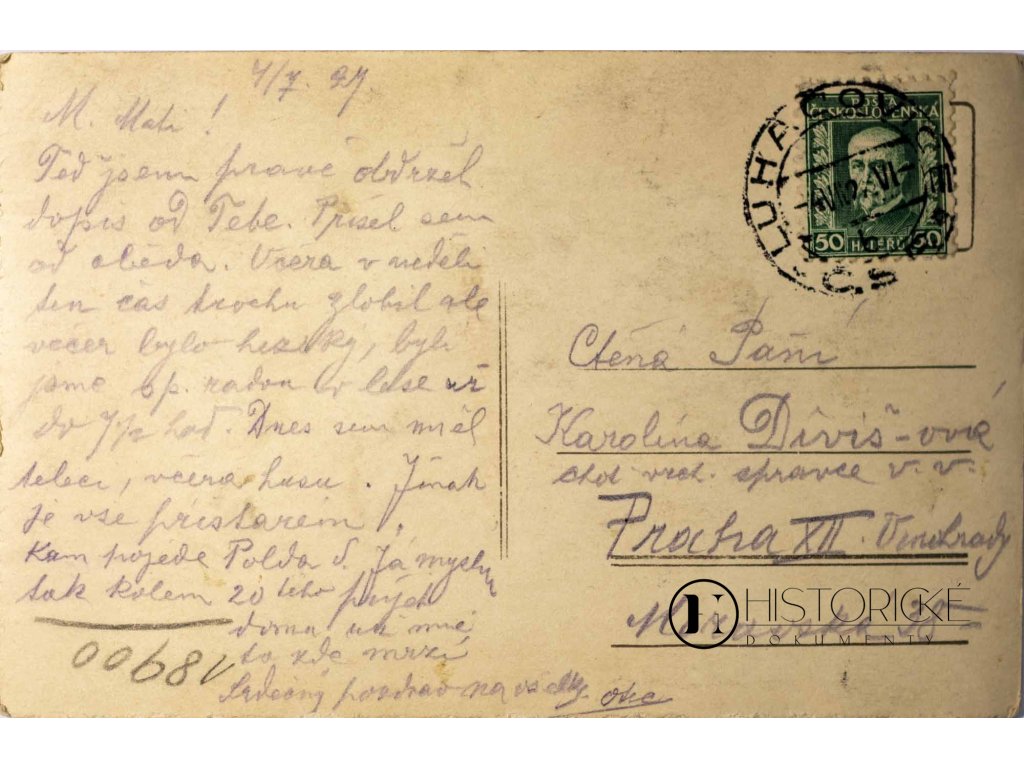 4/7. 27.
M. Mati!
Teď jsem pravě obdržel
dopis od Tebe. Přišel sem
od oběda. Včera v neděli
ten čas trochu zlobil ale
večer bylo hezký, byli
jsme op. radou v lese až
do 7½ hod. Dnes sem měl
teleci, včera husu. Jinak
je vše při starém.
Kam pojede Polda d. Já myslim
tak kolem 20 teho přijeti
domu už mě
to zde mrzí
Srdečný pozdrav na všecky. otec
00681
POŠTA
ČESKOSLOVENSKÁ
50 HALÉŘŮ 50
LUHAČOVICE
ČSR
Ctěná Paní
Karolina Diviš-ová
chot vrch. správce v. v.
Praha XII. Vinohrady
HISTORICKÉ
DOKUMENTY